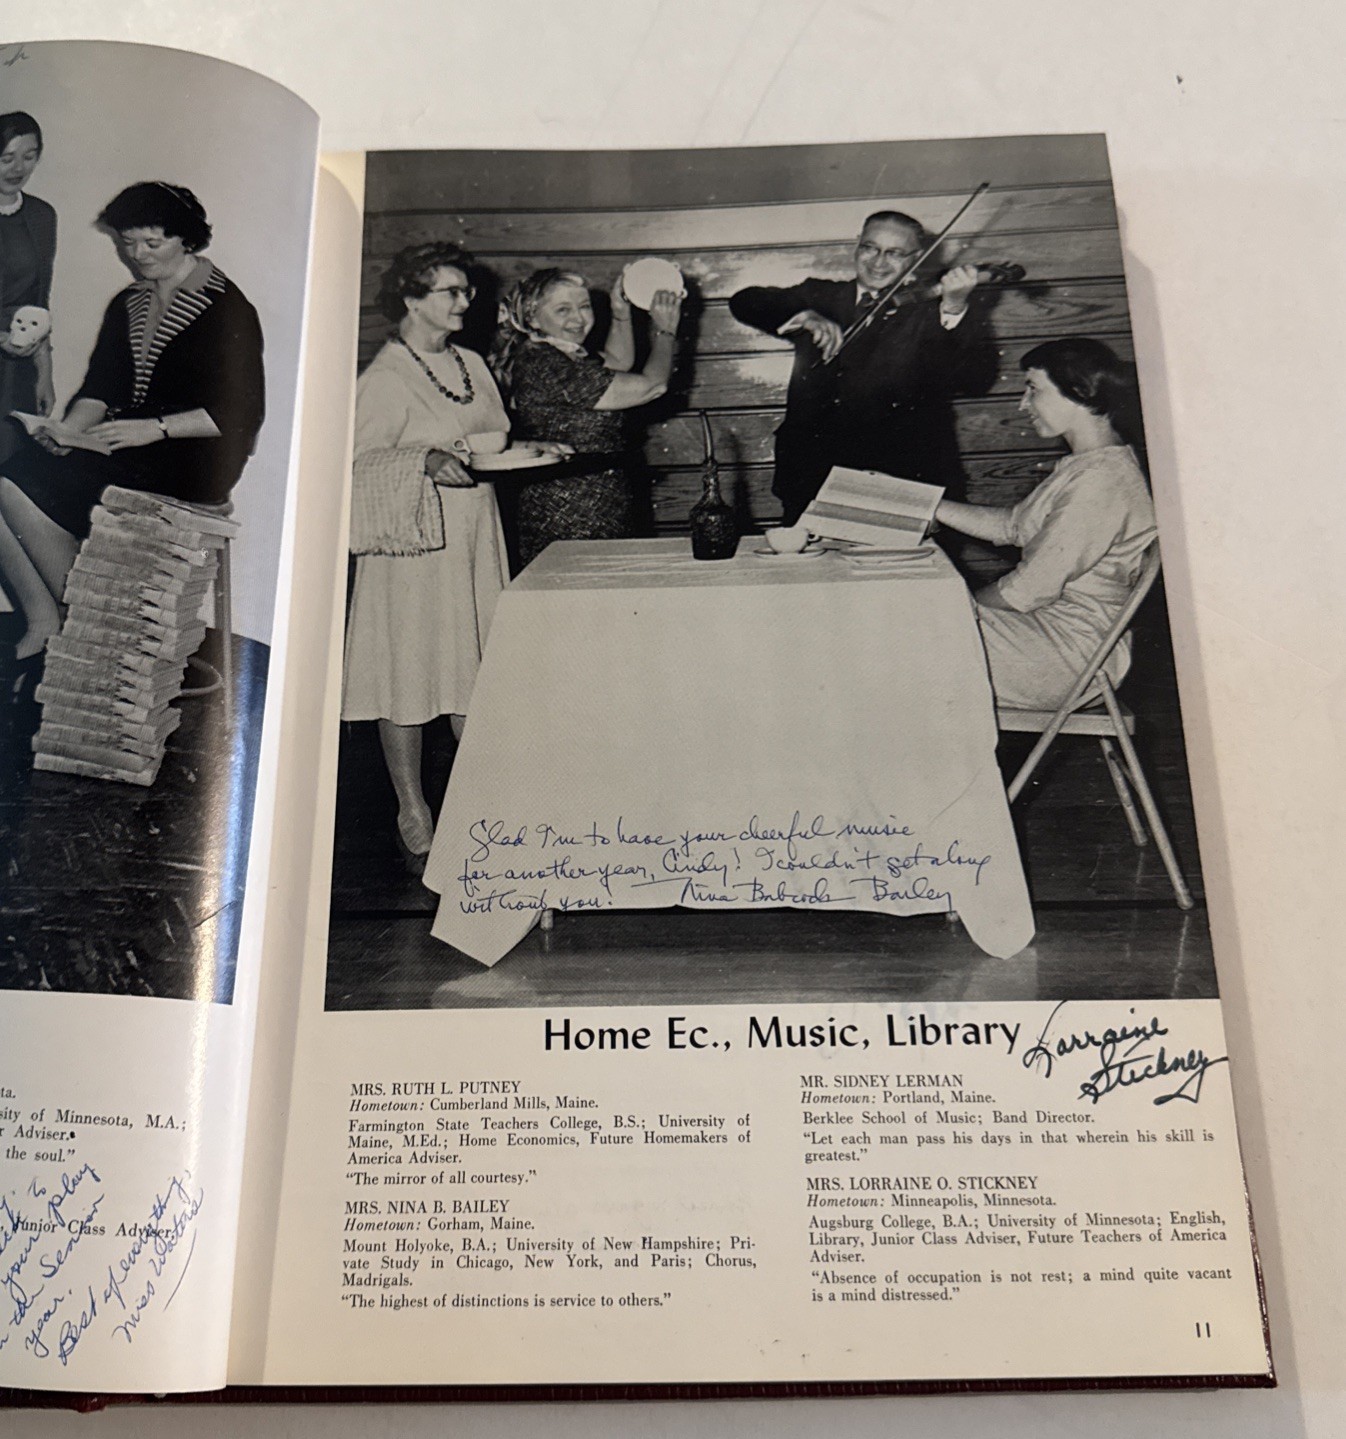 ta.
sity of Minnesota, M.A.;
r Adviser.
the soul."
to
your play
the Senior
year.
Junior Class Adviser.
Best of everything,
Miss Waters
Glad I'm to have your cheerful music
for another year, Cindy! I couldn't get along
without you! Nina Babcock Bailey
Home Ec., Music, Library
Lorraine
Stickney
MRS. RUTH L. PUTNEY
Hometown: Cumberland Mills, Maine.
Farmington State Teachers College, B.S.; University of
Maine, M.Ed.; Home Economics, Future Homemakers of
America Adviser.
"The mirror of all courtesy."
MRS. NINA B. BAILEY
Hometown: Gorham, Maine.
Mount Holyoke, B.A.; University of New Hampshire; Pri-
vate Study in Chicago, New York, and Paris; Chorus,
Madrigals.
"The highest of distinctions is service to others."
MR. SIDNEY LERMAN
Hometown: Portland, Maine.
Berklee School of Music; Band Director.
"Let each man pass his days in that wherein his skill is
greatest."
MRS. LORRAINE O. STICKNEY
Hometown: Minneapolis, Minnesota.
Augsburg College, B.A.; University of Minnesota; English,
Library, Junior Class Adviser, Future Teachers of America
Adviser.
"Absence of occupation is not rest; a mind quite vacant
is a mind distressed."
11